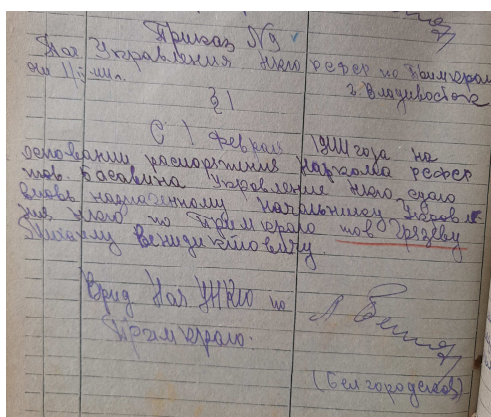 Приказ №9
Нач Управления НКЮ РСФСР по Примкраю
г. Владивосток
§1
С 1 февраля 1944 года на
основании распоряжения Наркома РСФСР
тов. Басавина Управление НКЮ сдаю
вновь назначенному начальнику Управле-
ния НКЮ по Примкраю тов Грязеву
Михаилу Венидиктовичу.
Врид Нач УНКЮ по
Примкраю.
(Белгородсков)